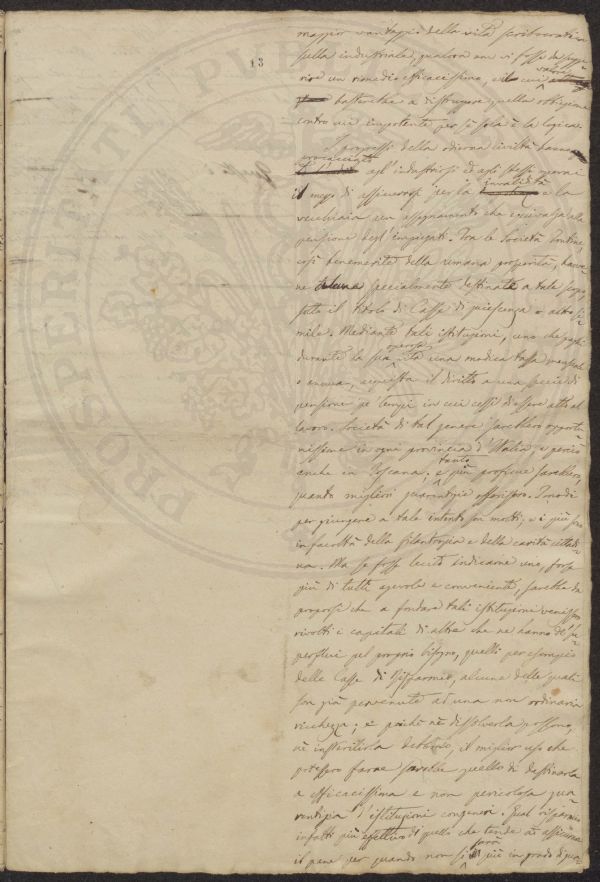 13
maggior vantaggio della vita scrivereccia
sulla industriale, qualora non vi fosse da sugge-
rire un rimedio efficacissimo, il cui valore
basterebbe a distruggere quella obbiezione
contro cui impotente per sè sola è la logica.
I progressi della odierna civiltà hanno
procacciato agl'industriosi ed agli stessi operai
il mezzo di assicurarsi per la invalidità e la
vecchiaia un assegnamento che equivalga alla
pensione degl'impiegati. Tra le Società
così benemerite della umana prosperità, haven-
ne alcune specialmente destinate a tale scopo,
sotto il titolo di Casse di quiescenza o altro si-
mile. Mediante tali istituzioni, uno che paghi
durante la sua vita operosa una modica tassa mensuale
o annua, acquista il diritto a una specie di
pensione pe' tempi in cui cessi di essere atto al
lavoro. Società di tal genere sarebbero opportu-
nissime in ogni provincia d'Italia, e perciò
anche in Toscana; e tanto più proficue sarebbero,
quanto migliori guarentigie offerissero. I modi
per giungere a tale intento son molti, e i più sono
in facoltà della filantropia e della carità cittadi-
na. Ma se fosse lecito indicarne uno, forse
più di tutti agevole e conveniente, sarebbe da
proporsi che a fondare tali istituzioni venissero
rivolti i capitali di altre che ne hanno di su-
perflui pel proprio bisogno, quelli per esempio
delle Casse di Risparmio, alcune delle quali
son già pervenute ad una non ordinaria
ricchezza; e poichè nè dissolverla possono,
nè insterilirla debbono, il miglior uso che
potessero farne sarebbe quello di destinarla
a efficacissima e non pericolosa gua-
rentigia d'istituzioni congeneri. Qual risparmio
infatti più effettivo di quello che tende ad assicurare
il pane per quando non si sarà più in grado di gua-